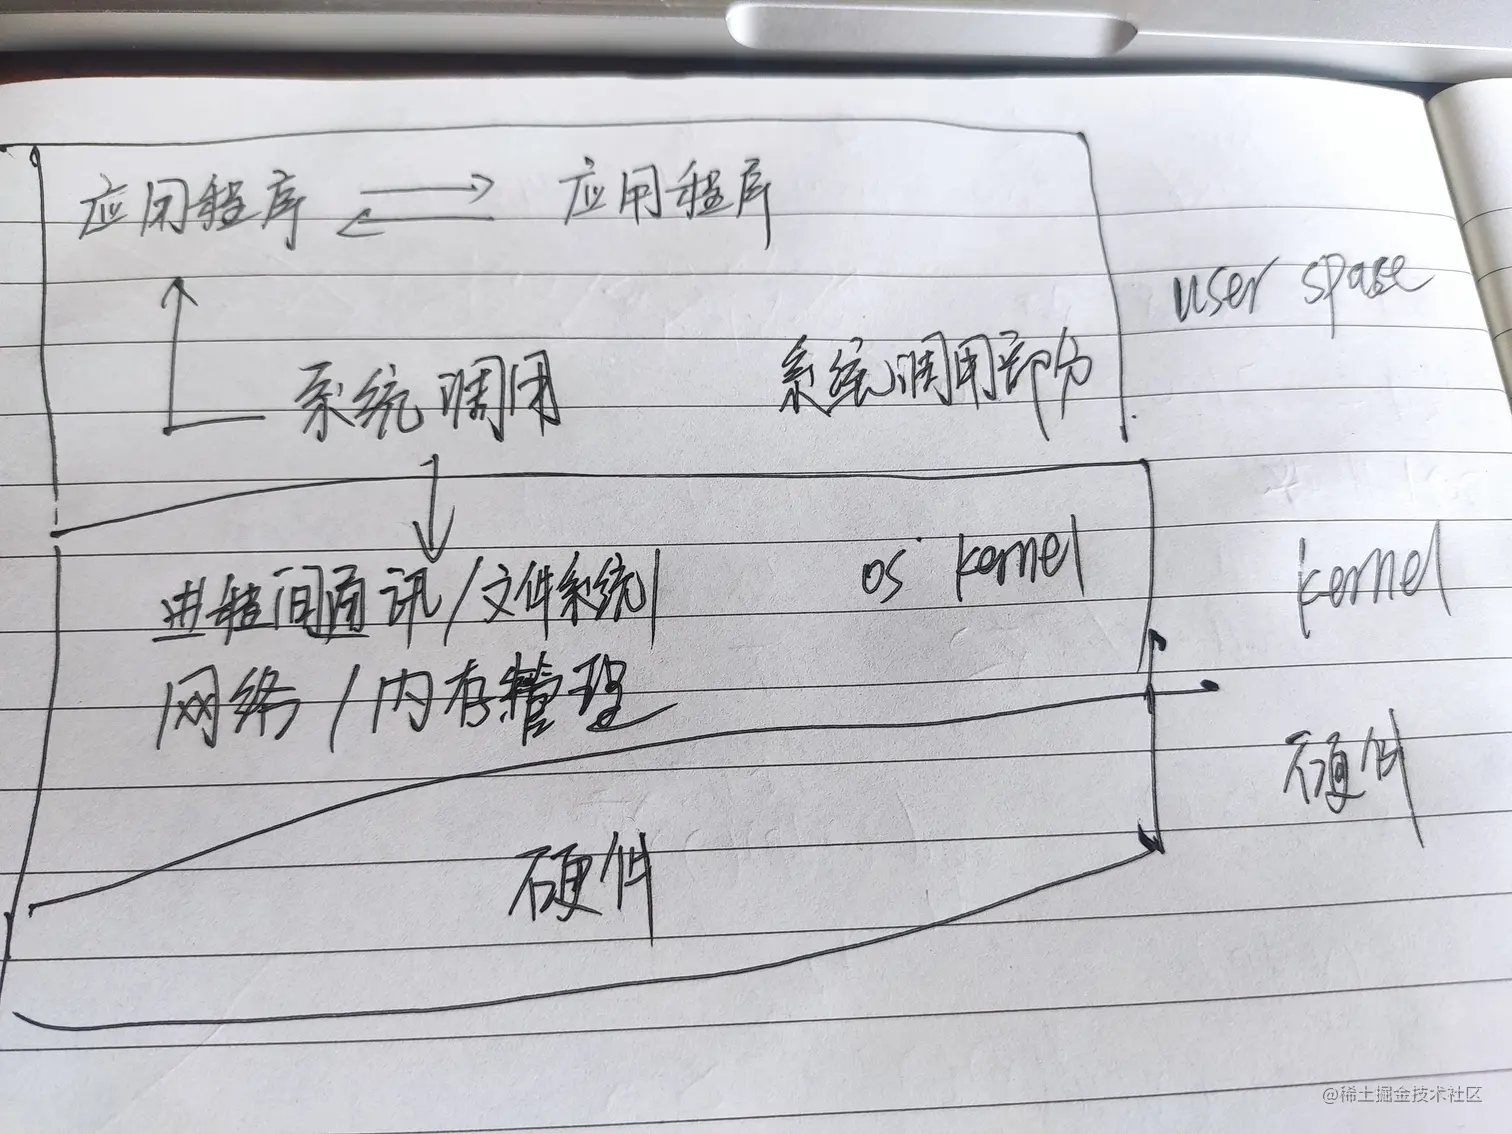 应用程序 应用程序
user space
系统调用 系统调用部分
进程间通讯/文件系统/ os kernel kernel
网络/内存管理
硬件
硬件
@稀土掘金技术社区